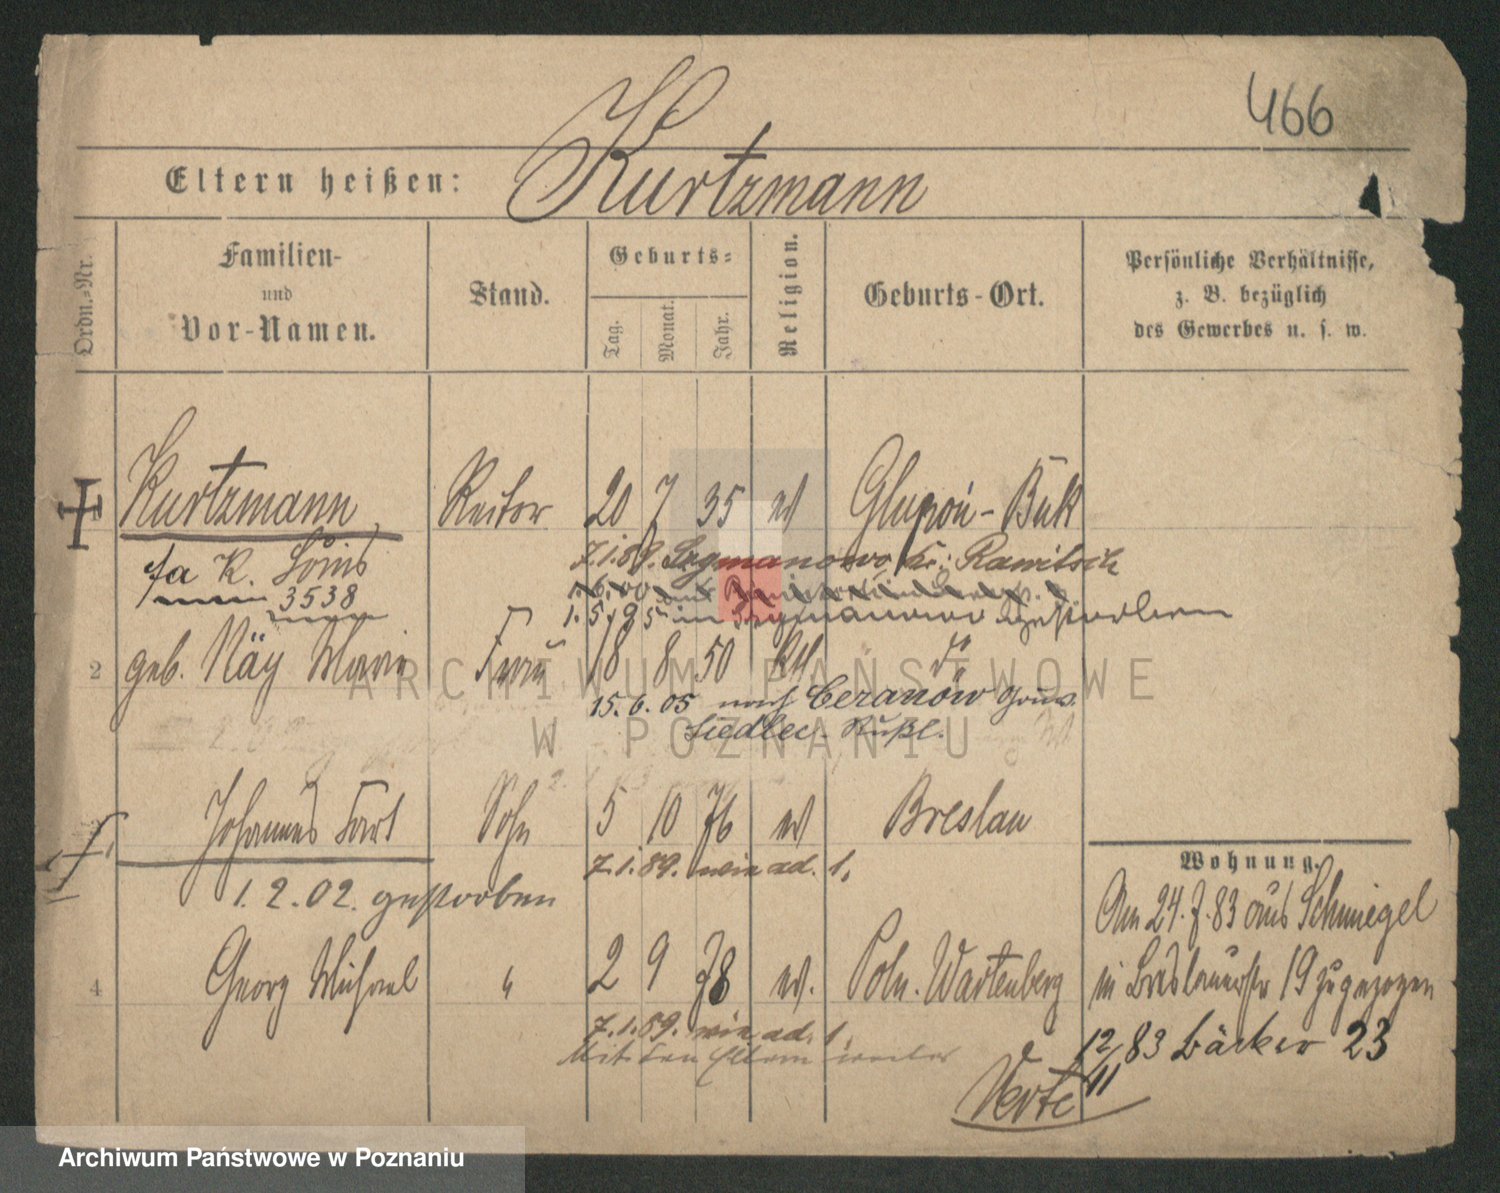 466
Eltern heißen: Kurtzmann
Ordn.-Nr.
Familien-
und
Vor-Namen.
Stand.
Geburts-
Tag.
Monat.
Jahr.
Religion.
Geburts-Ort.
Persönliche Verhältnisse,
z. B. bezüglich
des Gewerbes u. s. w.
Kurtzmann, 20 7 35 ev Glupoń-Buk
fa K. Louis
3538
7.1.89. Szymanowo, Kr. Rawitsch
1.5.95 in Szymanowo
2 geb. Näy Marie Frau 18 8 50 Kth do
15.6.05 nach Ceranów Gouv.
Siedlec. Rußl.
Johannes Curt Sohn 5 10 76 ev Breslau
7.1.89. wie ad. 1.
1.2.02. gestorben
4 Georg Michael " 2 9 78 ev. Poln. Wartenberg
7.1.89. wie ad. 1.
Mit den Eltern weiter
Wohnung.
Am 24.7.83 aus Schmiegel
in Breslauerstr 19 zugezogen
12/11 83 Bäcker 23
Verte
ARCHIWUM PAŃSTWOWE
W POZNANIU
Archiwum Państwowe w Poznaniu